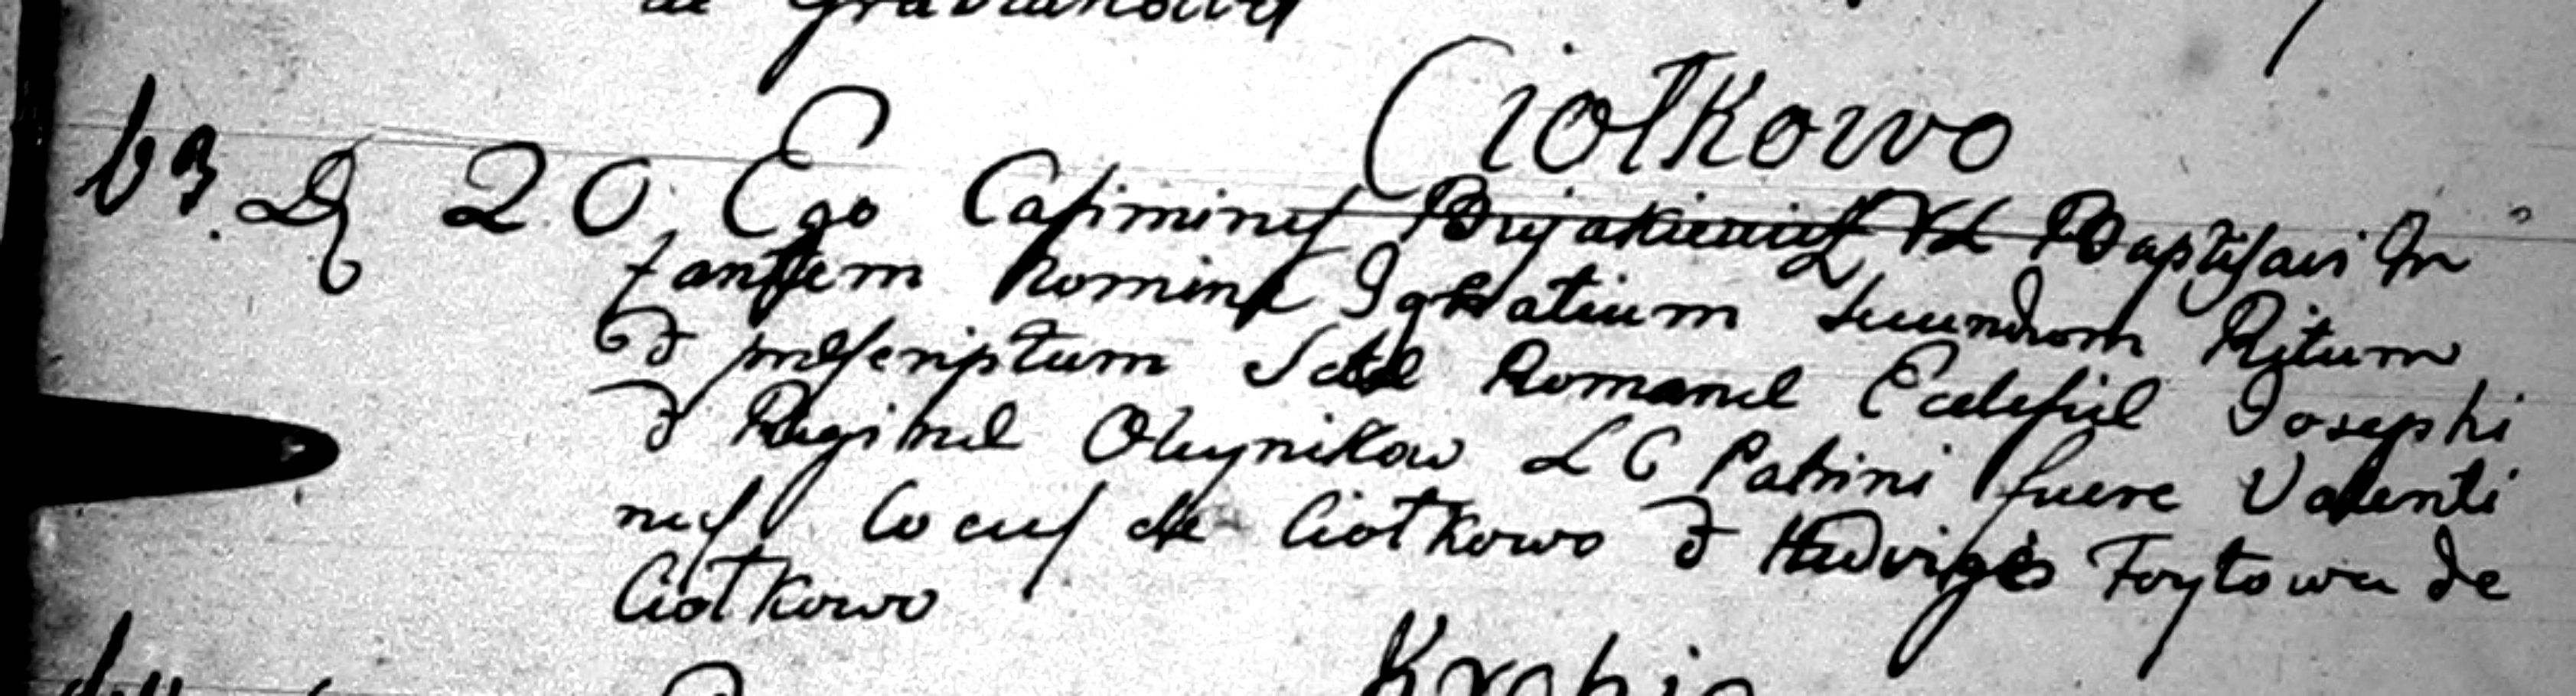 de Grabianowa
Ciołkowo
63. D 20. Ego Casimirus Bujakiewicz VL Baptisavi In
fantem Nomine Ignatium Secundum Ritum
& prescriptum Sctae Romanae Ecclesiae Josephi
& Reginae Oleynikow LC Patrini fuere Valenti
nus Cocus de Ciołkowo & Hedvigis Foytowa de
Ciołkowo